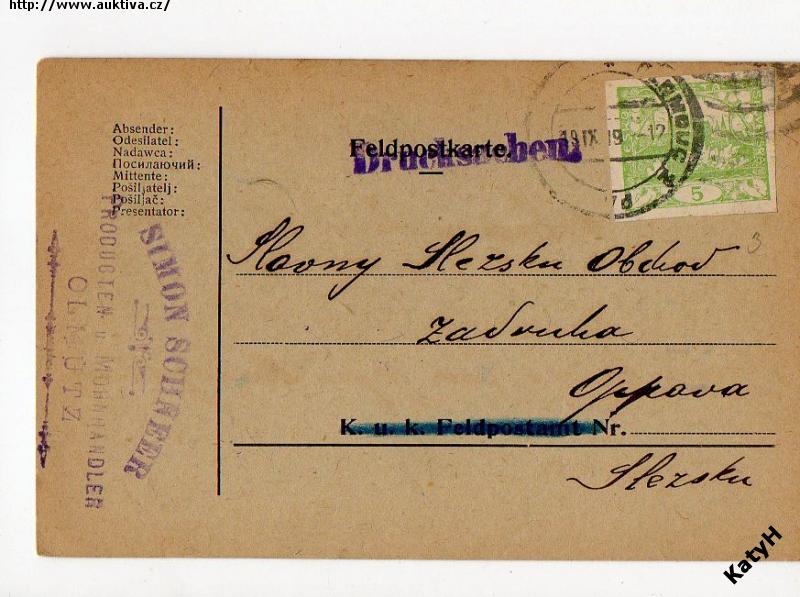 http://www.auktiva.cz/
Absender:
Odesílatel:
Nadawca:
Посилаючий:
Mittente:
Pošiljatelj:
Pošiljač:
Presentator:
Feldpostkarte.
Drucksachen.
19 IX 19 -12
5
3
SIMON SCHREER
PRODUCTEN u. MOHNHÄNDLER
OLMÜTZ
Slavny Slezsku Obchod
Zadruha
Oppava
K. u. k. Feldpostamt Nr.
Slezsku
KatyH